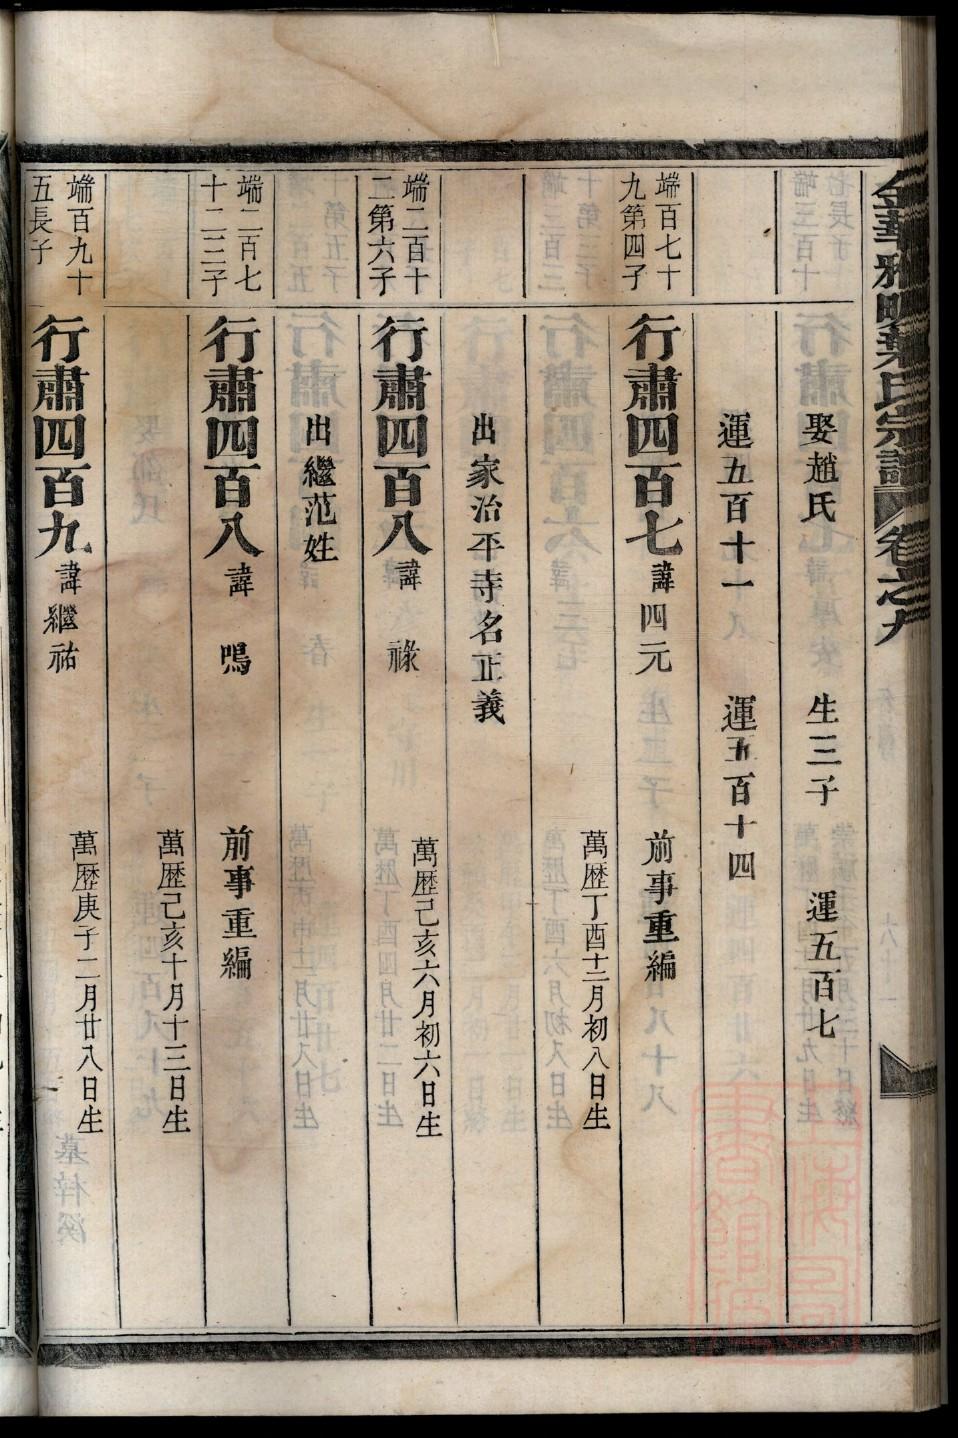 金華雅畈葉氏宗譜 卷之九
娶趙氏 生三子 運五百七
運五百十一 運五百十四
端百七十
九第四子
行肅四百七 諱四元 前事重編
萬歷丁酉十二月初八日生
出家治平寺名正義
端二百十
二第六子
行肅四百八 諱祿
萬歷己亥六月初六日生
出繼范姓
端二百七
十二三子
行肅四百八 諱鳴 前事重編
萬歷己亥十月十三日生
端百九十
五長子
行肅四百九 諱繼祐
萬歷庚子二月廿八日生